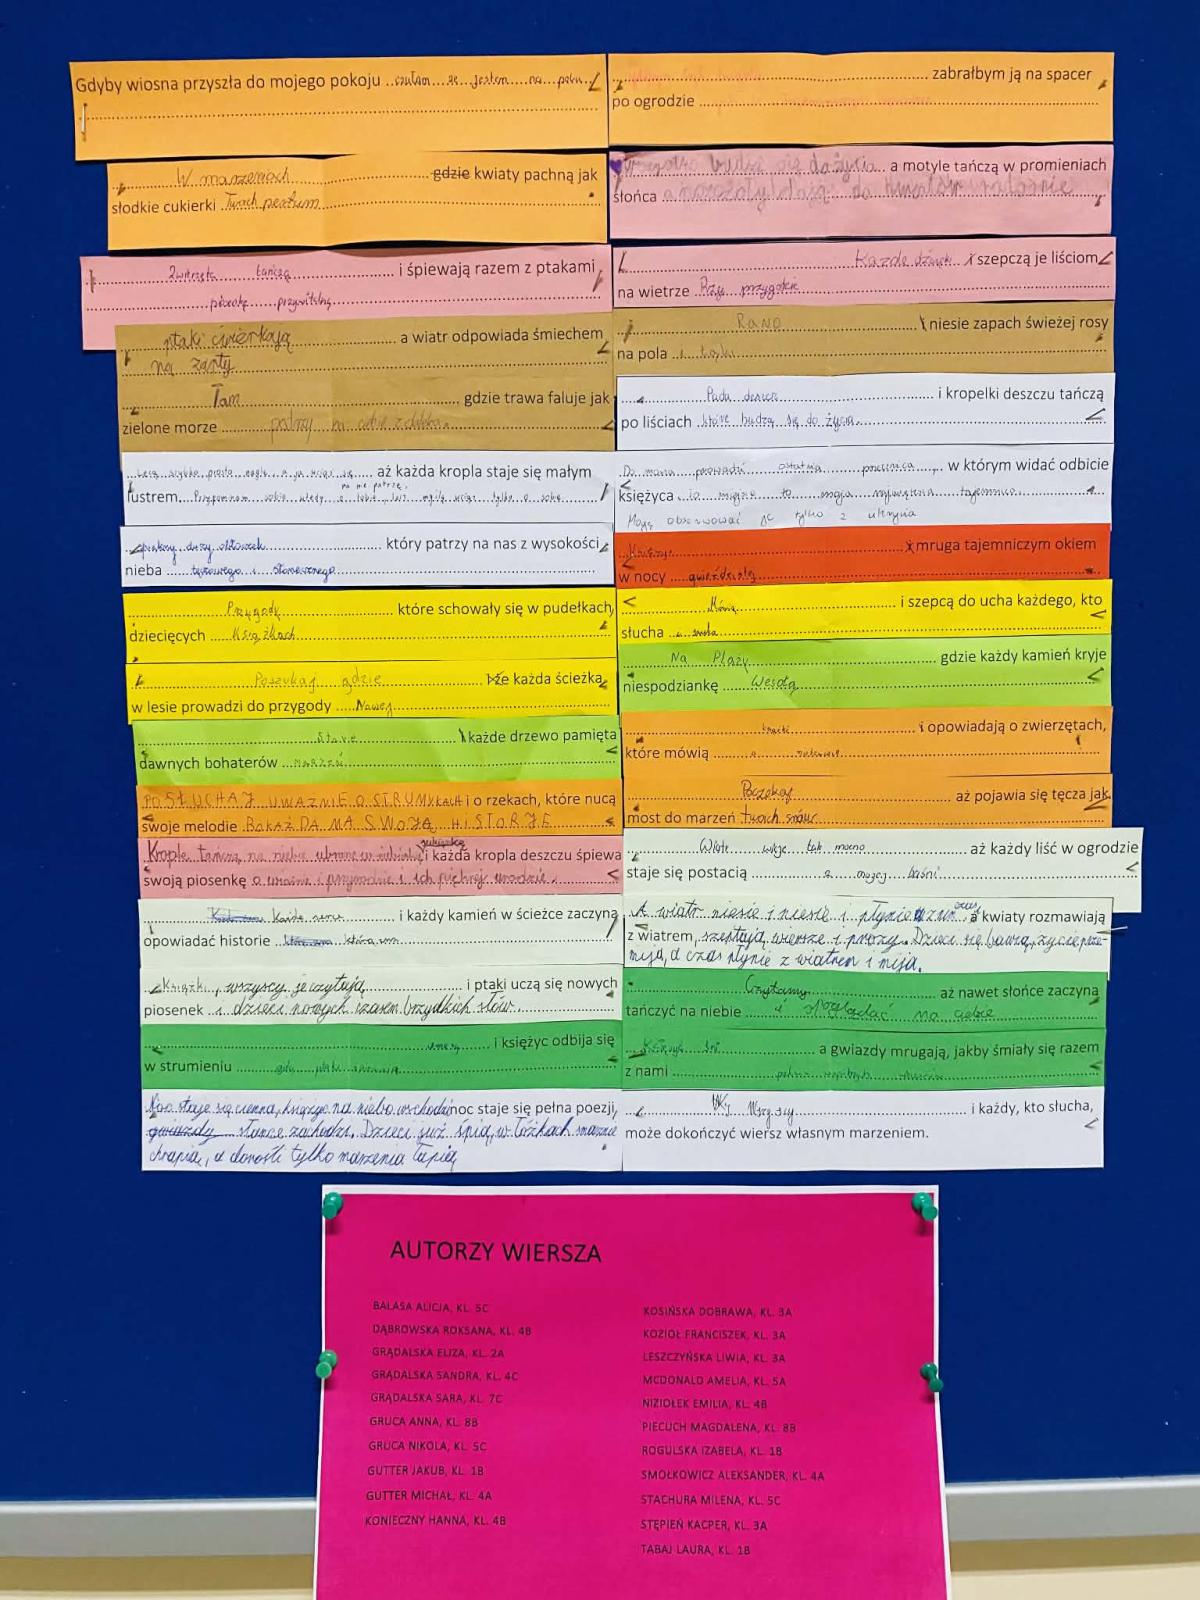 Gdyby wiosna przyszła do mojego pokoju czułam że jestem na polu
W marzeniach gdzie kwiaty pachną jak
słodkie cukierki Twoich perfum
Zwierzęta tańczą i śpiewają razem z ptakami
piosenkę przywitalną
ptaki ćwierkają a wiatr odpowiada śmiechem
na żarty
Tam gdzie trawa faluje jak
zielone morze patrzy na ciebie z daleka.
aż każda kropla staje się małym
lustrem. Przypominam sobie wtedy o tobie lecz myślę wciąż tylko o sobie
piękny duży obłoczek który patrzy na nas z wysokości
nieba tęczowego i słonecznego
Przygody które schowały się w pudełkach
dziecięcych Książkach
Poszukaj gdzie że każda ścieżka
w lesie prowadzi do przygody Nowej
Stare każde drzewo pamięta
dawnych bohaterów marzeń
POSŁUCHAJ UWAŻNIE O STRUMYKACH i o rzekach, które nucą
swoje melodie BO KAŻDA MA SWOJĄ HISTORJE
Krople tańczą na niebie ubrane w niebieskie sukienki i każda kropla deszczu śpiewa
swoją piosenkę o wiośnie i przyrodzie i ich pięknej urodzie.
i każdy kamień w ścieżce zaczyna
opowiadać historie
Książki, wszyscy je czytają i ptaki uczą się nowych
piosenek i dzieci nowych czasem brzydkich słów.
i księżyc odbija się
w strumieniu
Noc staje się ciemna, księżyc na niebo wschodzi noc staje się pełna poezji,
gwiazdy słońce zachodzi. Dzieci już śpią, w łóżkach smacznie
chrapią, a dorośli tylko marzenia łapią
zabrałbym ją na spacer
po ogrodzie
budzi się do życia a motyle tańczą w promieniach
słońca do kwiatów radośnie
Każde szepczą je liściom
na wietrze Przy przygodzie
Rano niesie zapach świeżej rosy
na pola i łąki
Pada deszcz i kropelki deszczu tańczą
po liściach które budzą się do życia.
Do mnie prowadzi ostatnia w którym widać odbicie
księżyca to miejsce to moja największa tajemnica.
Mogę obserwować je tylko z ukrycia
Księżyc mruga tajemniczym okiem
w nocy gwieździstej
Mówią i szepcą do ucha każdego, kto
słucha
Na Plaży gdzie każdy kamień kryje
niespodziankę Wesołą
i opowiadają o zwierzętach,
które mówią
Poczekaj aż pojawia się tęcza jak
most do marzeń twoich snów
Wiatr wieje tak mocno aż każdy liść w ogrodzie
staje się postacią z mojej baśni
A wiatr niesie i niesie i płynie czas, a kwiaty rozmawiają
z wiatrem, szeptają wiersze i prozy. Dzieci się bawią, życie prze-
mija, a czas płynie z wiatrem i mija.
Czytamy aż nawet słońce zaczyna
tańczyć na niebie i spoglądać na ciebie
Księżyc śni a gwiazdy mrugają, jakby śmiały się razem
z nami
Wszyscy i każdy, kto słucha,
może dokończyć wiersz własnym marzeniem.
AUTORZY WIERSZA
BALASA ALICJA, KL. 5C
DĄBROWSKA ROKSANA, KL. 4B
GRĄDALSKA ELIZA, KL. 2A
GRĄDALSKA SANDRA, KL. 4C
GRĄDALSKA SARA, KL. 7C
GRUCA ANNA, KL. 8B
GRUCA NIKOLA, KL. 5C
GUTTER JAKUB, KL. 1B
GUTTER MICHAŁ, KL. 4A
KONIECZNY HANNA, KL. 4B
KOSIŃSKA DOBRAWA, KL. 3A
KOZIOŁ FRANCISZEK, KL. 3A
LESZCZYŃSKA LIWIA, KL. 3A
MCDONALD AMELIA, KL. 5A
NIZIOŁEK EMILIA, KL. 4B
PIECUCH MAGDALENA, KL. 8B
ROGULSKA IZABELA, KL. 1B
SMOŁKOWICZ ALEKSANDER, KL. 4A
STACHURA MILENA, KL. 5C
STĘPIEŃ KACPER, KL. 3A
TABAJ LAURA, KL. 1B